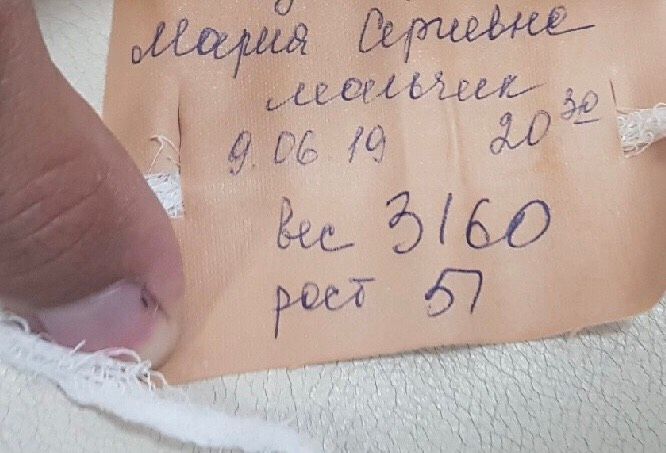 Мария Сергиевна
мальчик
9.06.19 20 30
вес 3160
рост 51